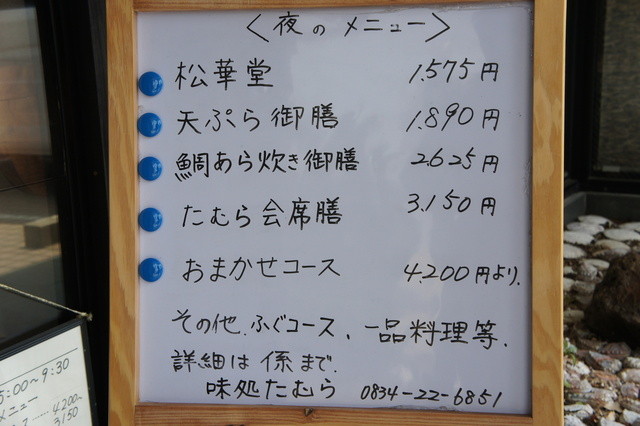 〈夜のメニュー〉
松華堂 1.575円
天ぷら御膳 1.890円
鯛あら炊き御膳 2.625円
たむら会席膳 3.150円
おまかせコース 4.200円より.
その他.ふぐコース、一品料理等.
詳細は係まで.
味処たむら 0834-22-6851
5:00〜9:30
メニュー
4.200〜
3150